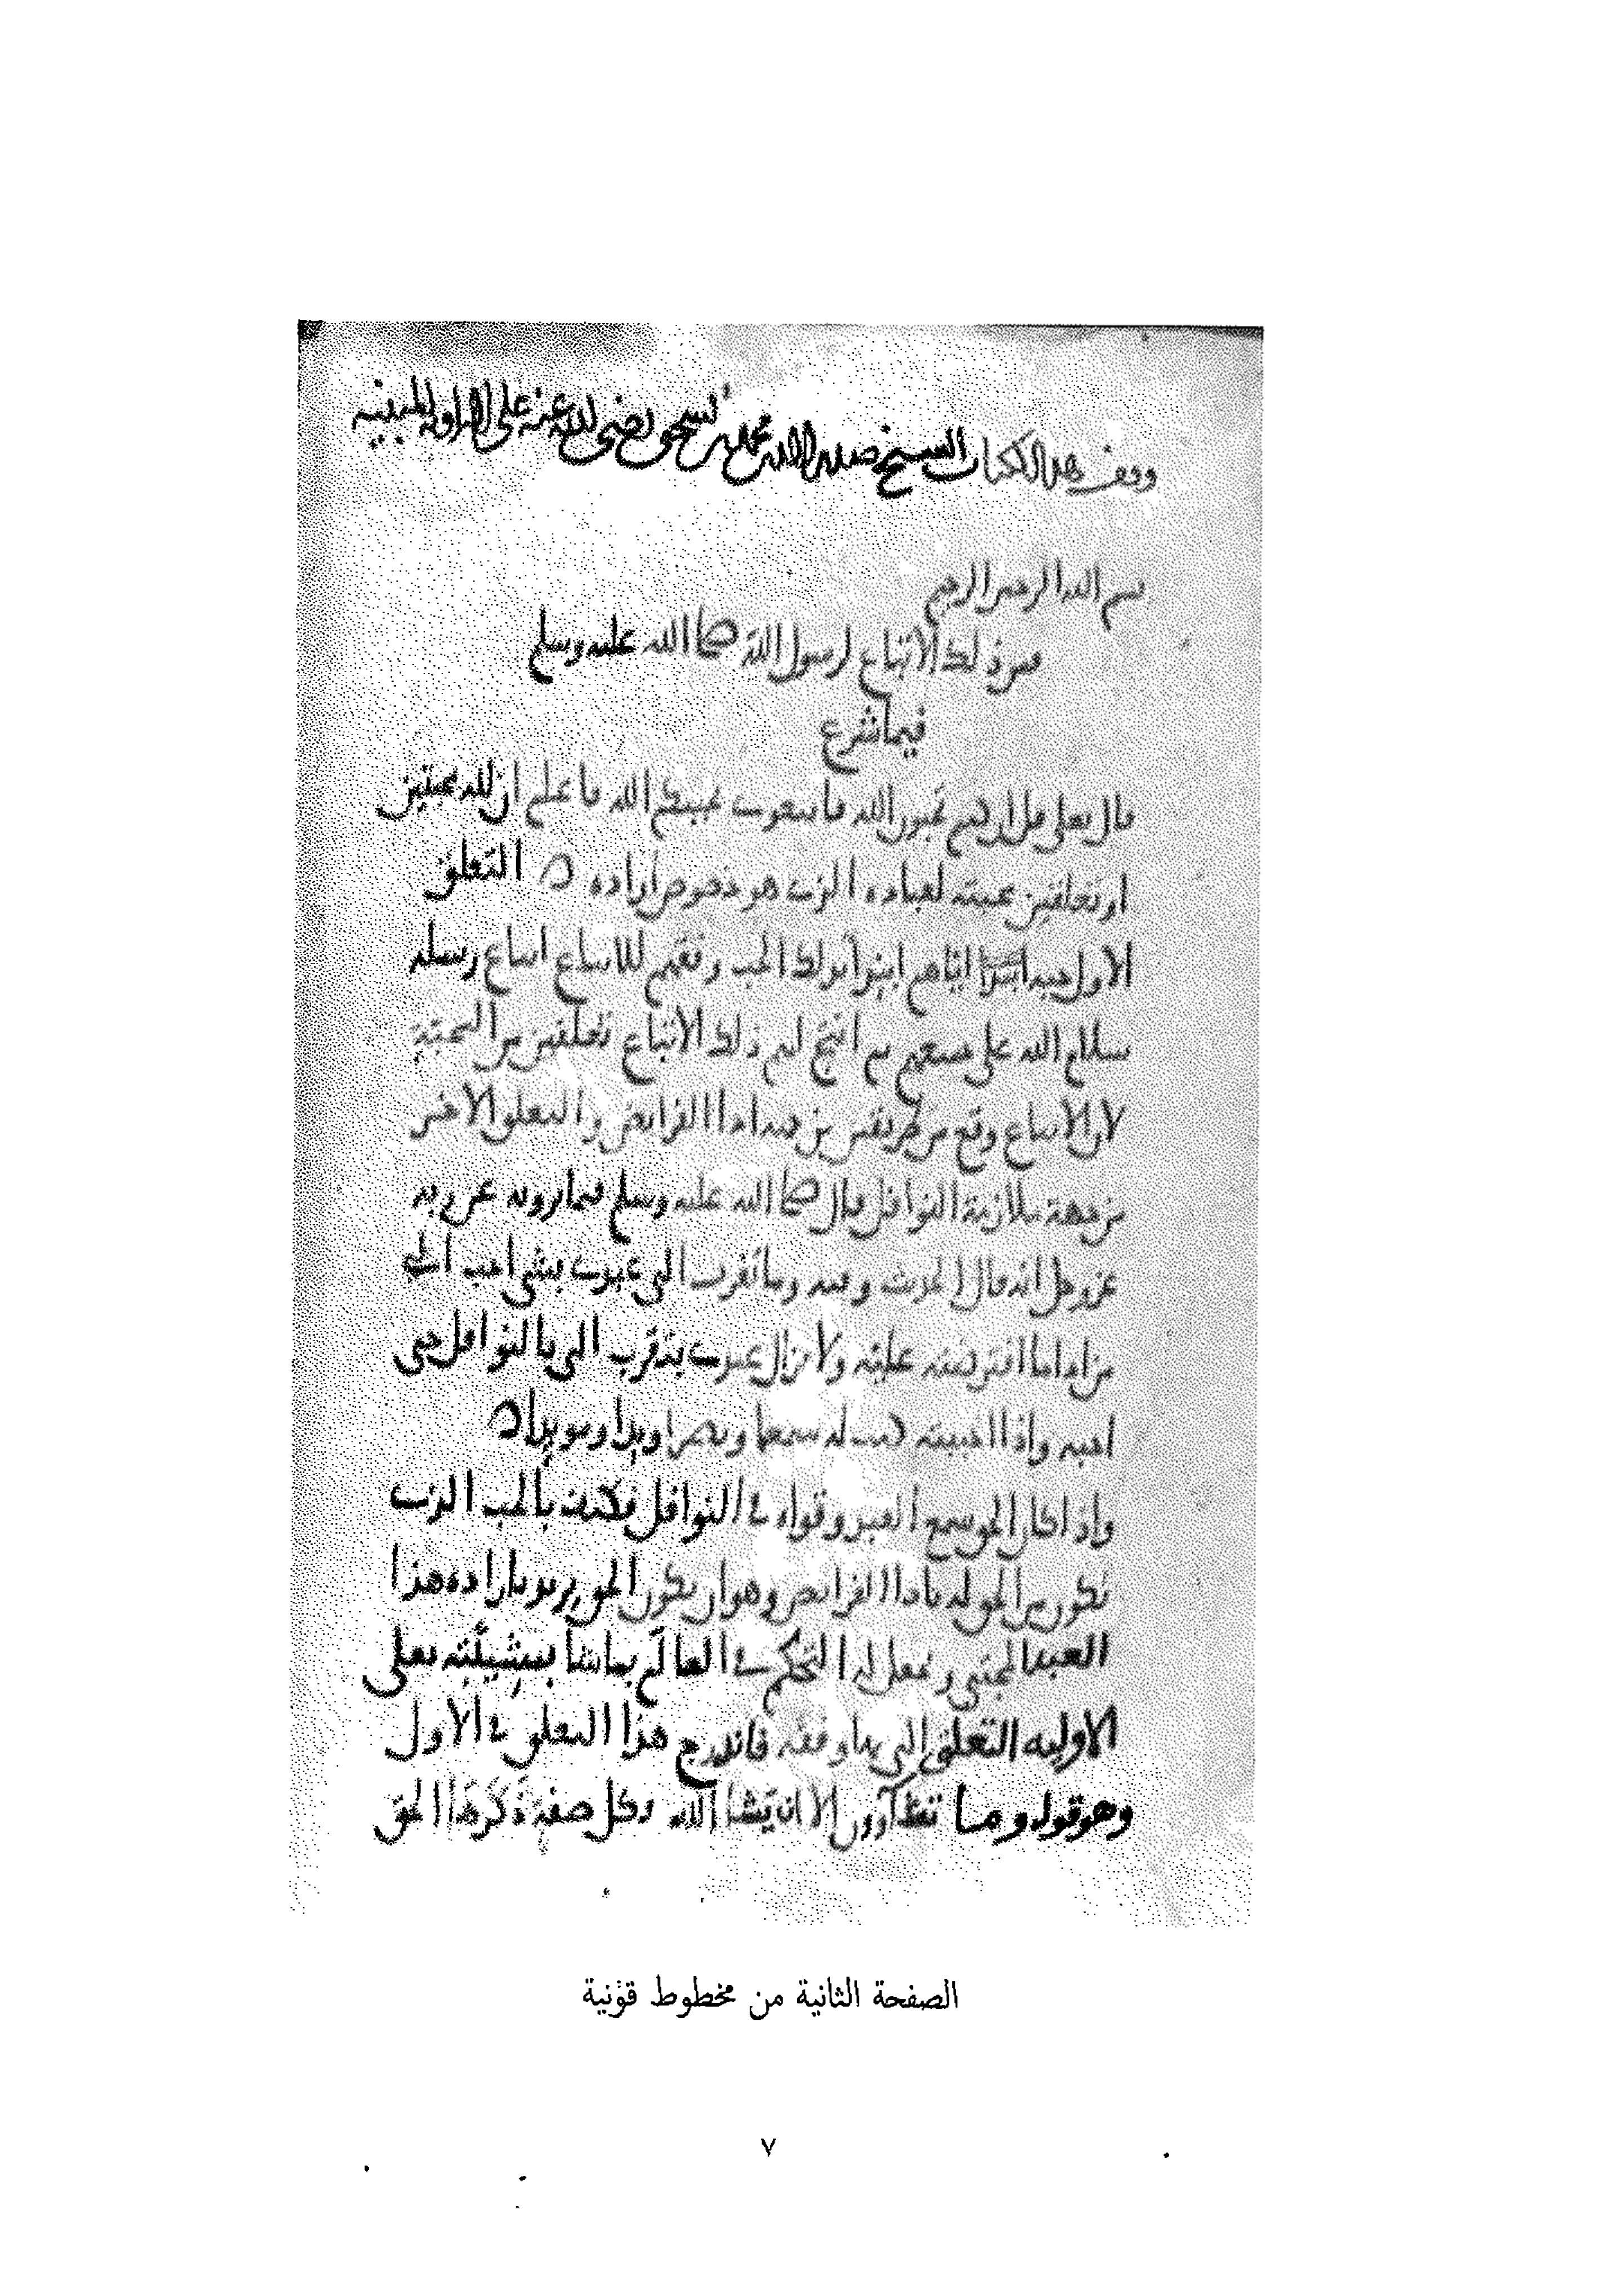 وقف هذا الكتاب الشيخ صدر الدين محمد بن اسحق رضى الله عنه على
بسم الله الرحمن الرحيم
فمن ذلك الاتباع لرسول الله صلى الله عليه وسلم
فيما شرع
قال تعلى قل ان كنتم تحبون الله فاتبعونى يحببكم الله فاعلم ان لله محبتين
او تعلقين محبته لعباده الذى هو خصوص اراده ه التعلق
الاول حبه ابتدأ اياهم ابتدا بذلك الحب وفقهم للاتباع اتباع رسله
سلام الله على جميعهم ثم انتج لهم ذلك الاتباع تعلقين من المحبة
لان الاتباع وقع من طريقين من جهة ادا الفرايض والتعلق الاخر
من جهة ملازمة النوافل قال صلى الله عليه وسلم فيما يرويه عن ربه
عز وجل انه قال الحديث وفيه وما تقرب الى عبدى بشى احب الى
من اداما افترضته عليه ولا يزال عبدى يتقرب الى بالنوافل حتى
احبه واذا احببته كنت له سمعا وبصرا ويدا ومويدا ه
واذا كان الحق سمع العبد وقواه فى النوافل فكيف بالحب الذى
يكون من الحق له بادا الفرايض وهو ان يكون الحق يريد بارادة هذا
العبد المجتبى ويجعل له التحكم فى العالم بما شا بمشيئته تعلى
الاوليه التعلق التى بها وفقه فاندرج هذا التعلق فى الاول
وهو قوله وما تشآوون الا ان يشا الله وكل صفة ذكرها الحق
الصفحة الثانية من مخطوط قونية
٧